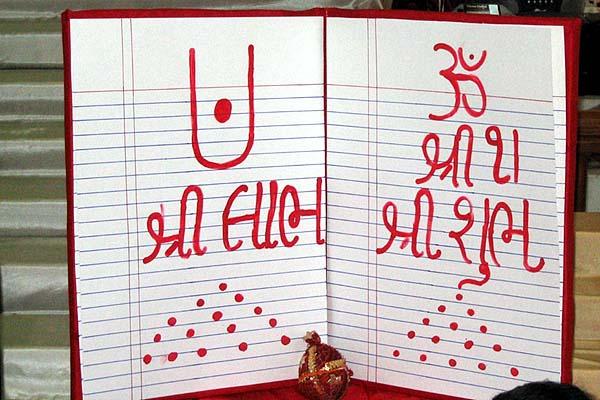 શ્રી લાભ
ૐ
શ્રી ૧ા
શ્રી શુભ